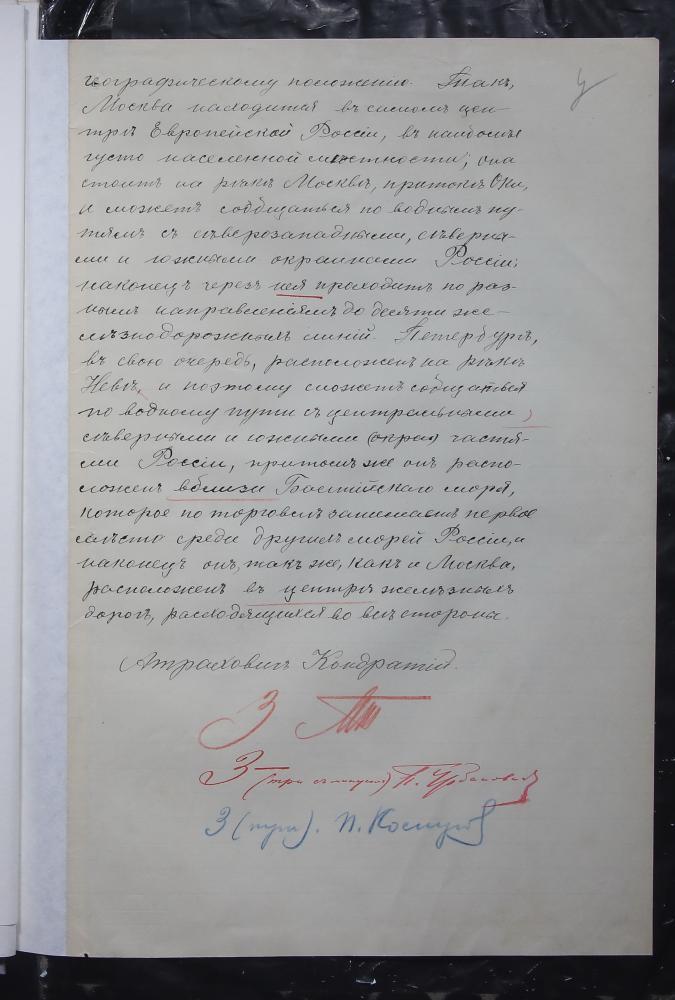 географическому положенію. Такъ,
Москва находится въ самомъ цен-
трѣ Европейской Россіи, въ наиболѣе
густо населенной мѣстности; она
стоитъ на рѣкѣ Москвѣ, притокѣ Оки,
и можетъ сообщаться по воднымъ пу-
тямъ съ сѣверозападными, сѣверны-
ми и южными окраинами Россіи;
наконецъ черезъ нея проходитъ по раз-
нымъ направленіямъ до десяти же-
лѣзнодорожныхъ линій. Петербургъ,
въ свою очередь, расположенъ на рѣкѣ
Невѣ, и поэтому можетъ сообщаться
по водному пути съ центральными,
сѣверными и южными (окра) частя-
ми Россіи, притомъ же онъ распо-
ложенъ вблизи Балтійскаго моря,
которое по торговлѣ занимаетъ первое
мѣсто среди другихъ морей Россіи, и
наконецъ онъ, такъ же, какъ и Москва,
расположенъ въ центрѣ желѣзныхъ
дорогъ, расходящихся во всѣ стороны.
Атраховичъ Кондратій.
3
3 (три) П.
3 (три). П.